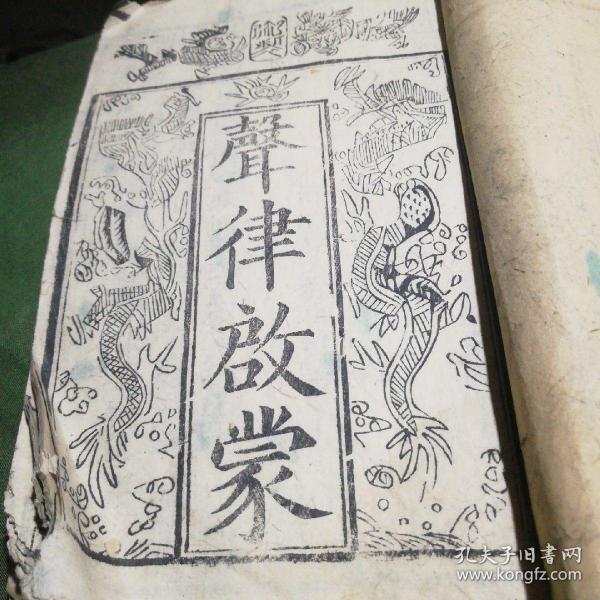 聲律啟蒙
孔夫子旧書网
www.kongfz.com